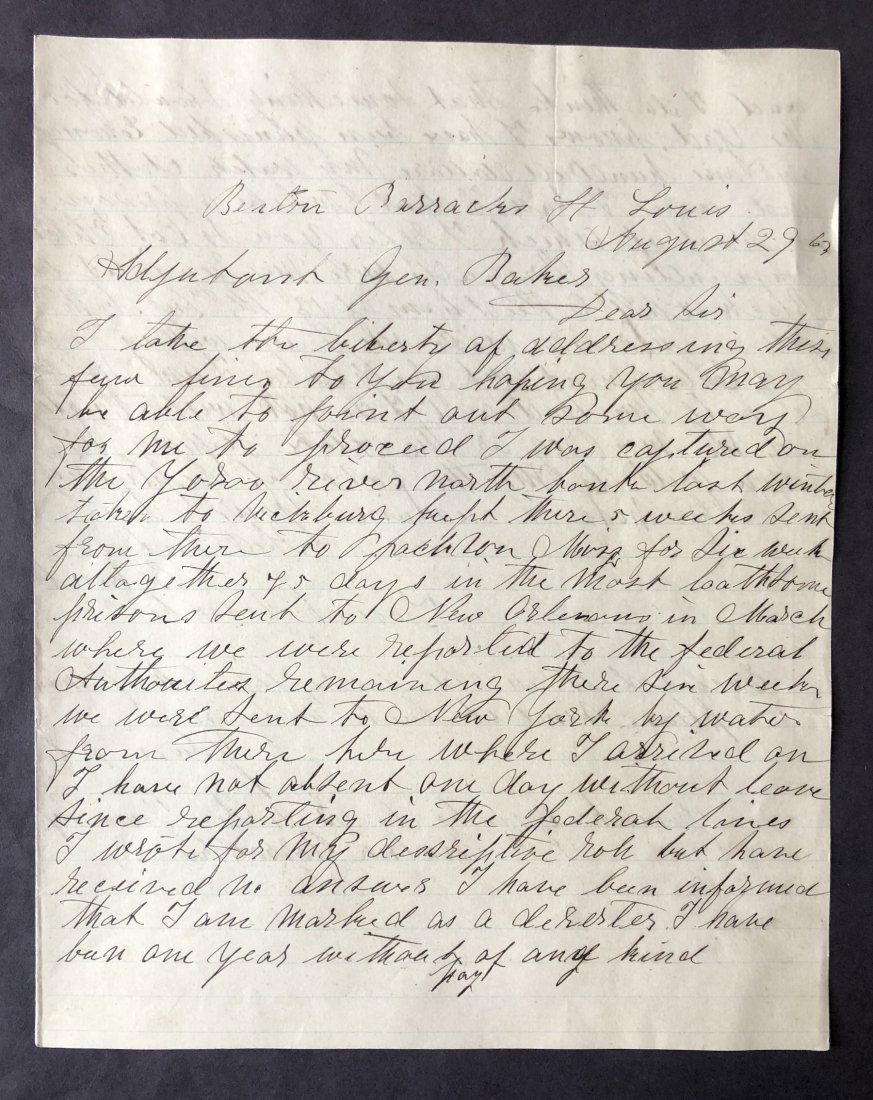 Benton Barracks St Louis
August 29 63
Adjutant Gen. Baker
Dear Sir
I take the liberty of addressing these
few lines to you hoping you may
be able to point out some way
for me to proceed I was captured on
the Yazoo river north bank last winter
taken to Vicksburg kept there 5 weeks sent
from there to Jackson Miss for six week
altogether 75 days in the most loathsome
prisons sent to New Orleans in March
where we were reported to the federal
Authorites remaining there six weeks
we were sent to New York by water
from there here where I arrived on
I have not absent one day without leave
since reporting in the federal lines
I wrote for my desscriptive roll but have
received no answer I have been informed
that I am marked as a deserter I have
ben one year without pay of any kind